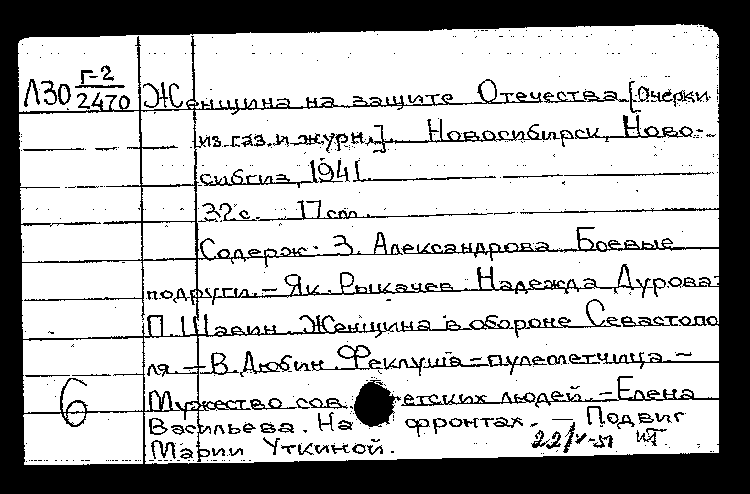 Л30 Г-2/2470 Женщина на защите Отечества. [Очерки
из газ. и журн.]. Новосибирск, Ново-
сибгиз, 1941.
32 с. 17 см.
Содерж: З. Александрова Боевые
подруги. – Як. Рыкачев. Надежда Дурова.
П. Шавин. Женщина в обороне Севастопо
ля. – В. Дюбин. Феклуша – пулеметчица. –
6 Мужество советских людей. – Елена
Васильева. На фронтах. – Подвиг
Марии Уткиной. 22/V-51